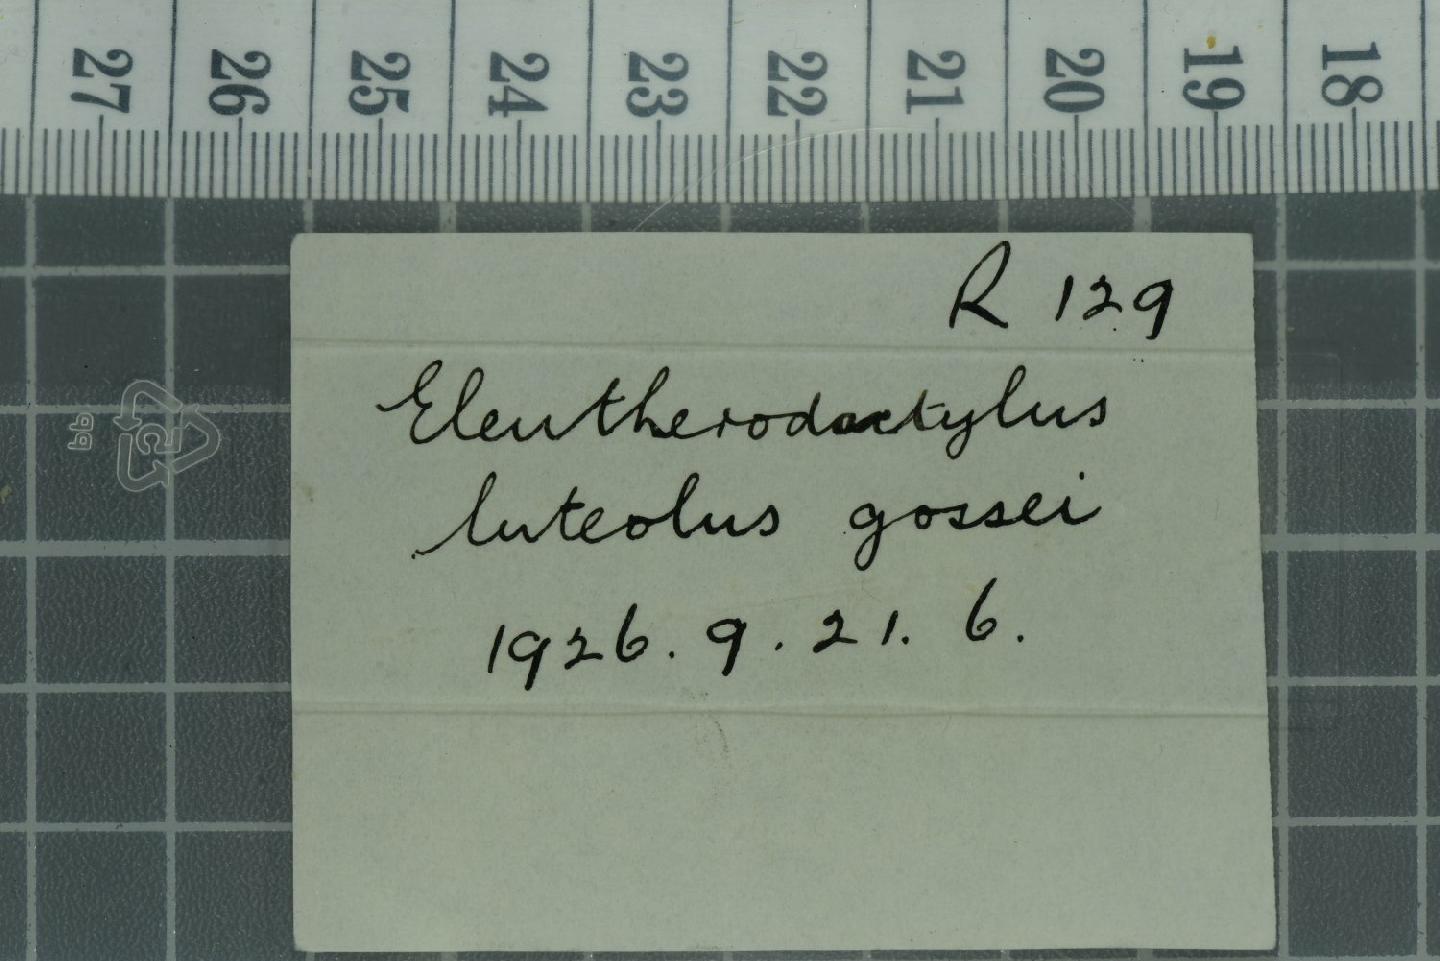 27 26 25 24 23 22 21 20 19 18
R 129
Eleutherodactylus
luteolus gossei
1926. 9. 21. 6.